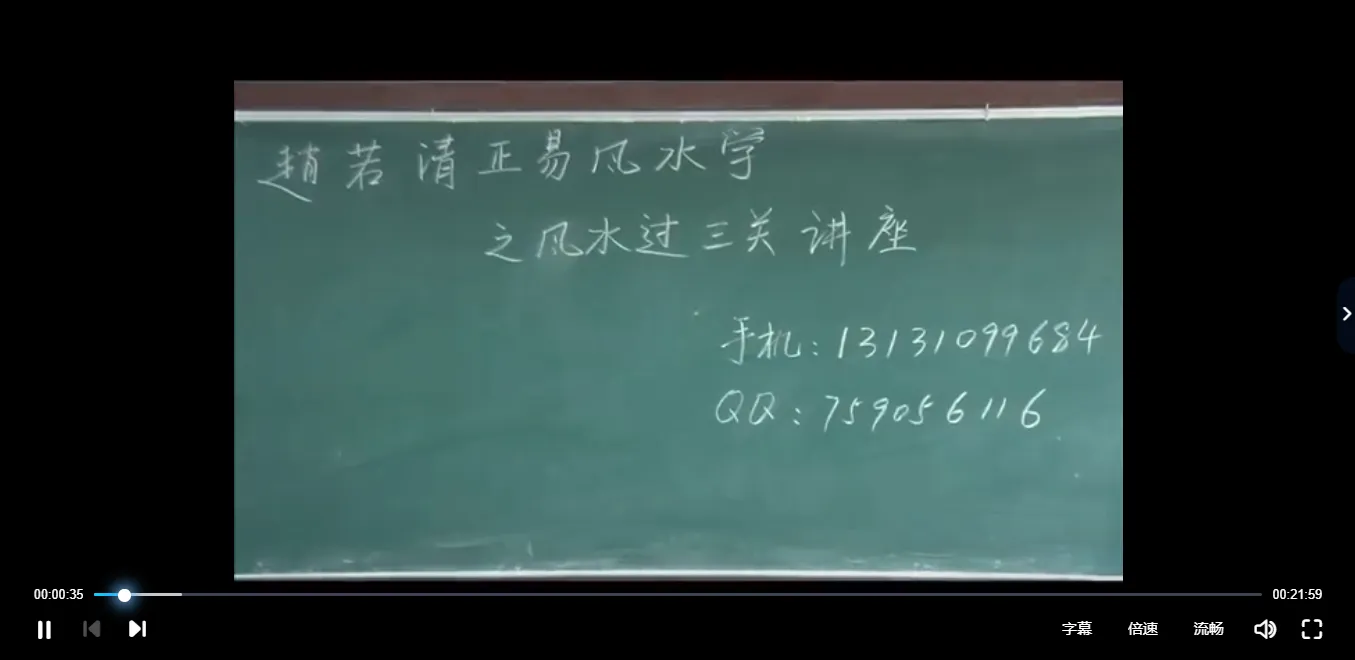 趙若清正易风水学
之风水过三关讲座
手机：13131099684
QQ：759056116
00:00:35
00:21:59
字幕 倍速 流畅